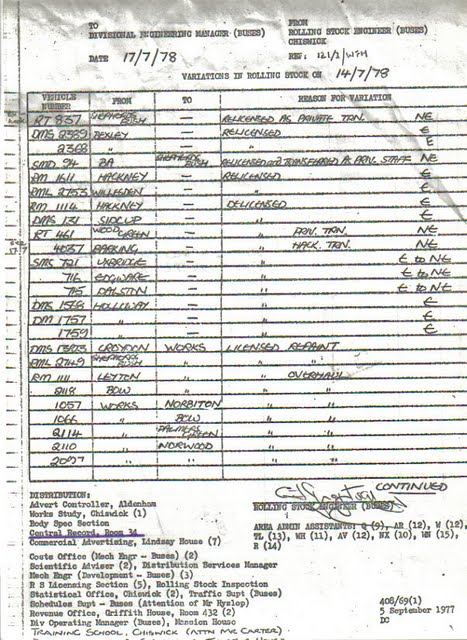 TO
DIVISIONAL ENGINEERING MANAGER (BUSES)
FROM
ROLLING STOCK ENGINEER (BUSES)
CHISWICK
DATE 17/7/78
REF: 121/1/WTH
VARIATIONS IN ROLLING STOCK ON 14/7/78
VEHICLE NUMBER FROM TO REASON FOR VARIATION
RT 837 SHEPHERDS BUSH — RELICENSED AS PRIVATE TRN. NE
DMS 2389 BEXLEY — RELICENSED E
2368 " — " E
SMD 94 BA SHEPHERDS BUSH RELICENSED and TRANSFERRED AS PRIV. STAFF NE
DM 1611 HACKNEY — RELICENSED E
RML 2753 WILLESDEN — " E
RM 1114 HACKNEY — DELICENSED E
DMS 131 SIDCUP — " E
RT 461 WOOD GREEN — " PRIV. TRN. NE
4037 BARKING — " MACK. TRN. NE
SMS 721 UXBRIDGE — " E to NE
716 EDGWARE — " E to NE
715 DALSTON — " E to NE
DMS 1578 HOLLOWAY — " E
DM 1757 " — " E
1759 " — " E
DMS CROYDON WORKS LICENSED REPAINT
RML 2749 SHEPHERDS BUSH " " "
RM 1111 LEYTON " " OVERHAUL
2118 BOW " " "
1057 WORKS NORBITON " "
1066 " BOW " "
2114 " PALMERS GREEN " "
2110 " NORWOOD " "
2097 " " " "
CONTINUED
ROLLING STOCK ENGINEER (BUSES)
DISTRIBUTION:
Advert Controller, Aldenham
Works Study, Chiswick (1)
Body Spec Section
Central Record, Room 34
Commercial Advertising, Lindsay House (7)
Costs Office (Mech Engr - Buses) (2)
Scientific Adviser (2), Distribution Services Manager
Mech Engr (Development - Buses) (3)
R S Licensing Section (5), Rolling Stock Inspection
Statistical Office, Chiswick (2), Traffic Supt (Buses)
Schedules Supt - Buses (Attention of Mr Hyslop)
Revenue Office, Griffith House, Room 432 (2)
Div Operating Manager (Buses), Mansion House
TRAINING SCHOOL, CHISWICK (ATTN MR CARTER)
AREA ADMIN ASSISTANTS: Q (9), AR (12), W (12),
TL (13), WH (11), AV (12), NX (10), WN (15),
R (14)
408/69(1)
5 September 1977
DC